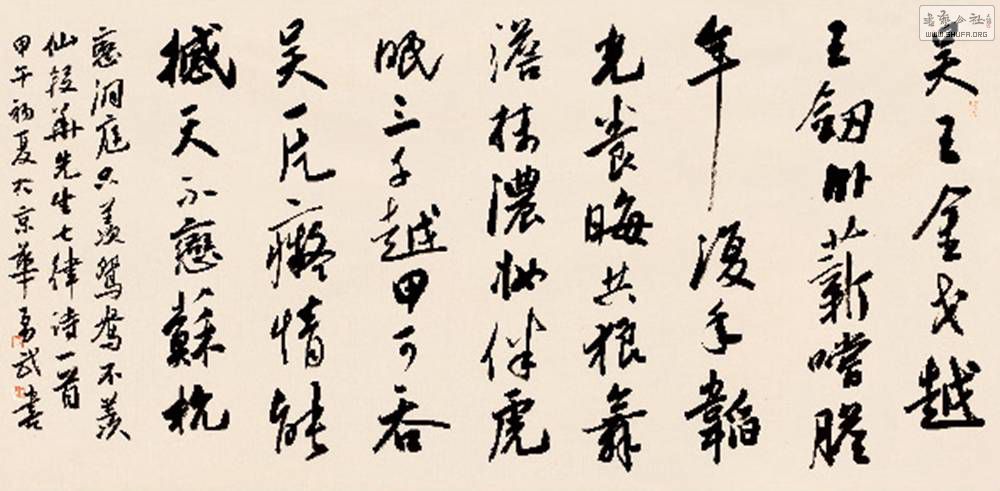 吴王金戈越
王剑卧薪尝胆
年复年韬
光养晦共狼舞
澹抹浓妆伴虎
眠三千越甲可吞
吴一片痴情能
撼天不恋苏杭
恋洞庭只羡鸳鸯不羡
仙段华先生七律诗一首
甲午初夏于京华 勇武书
书法公社
WWW.SHUFA.ORG